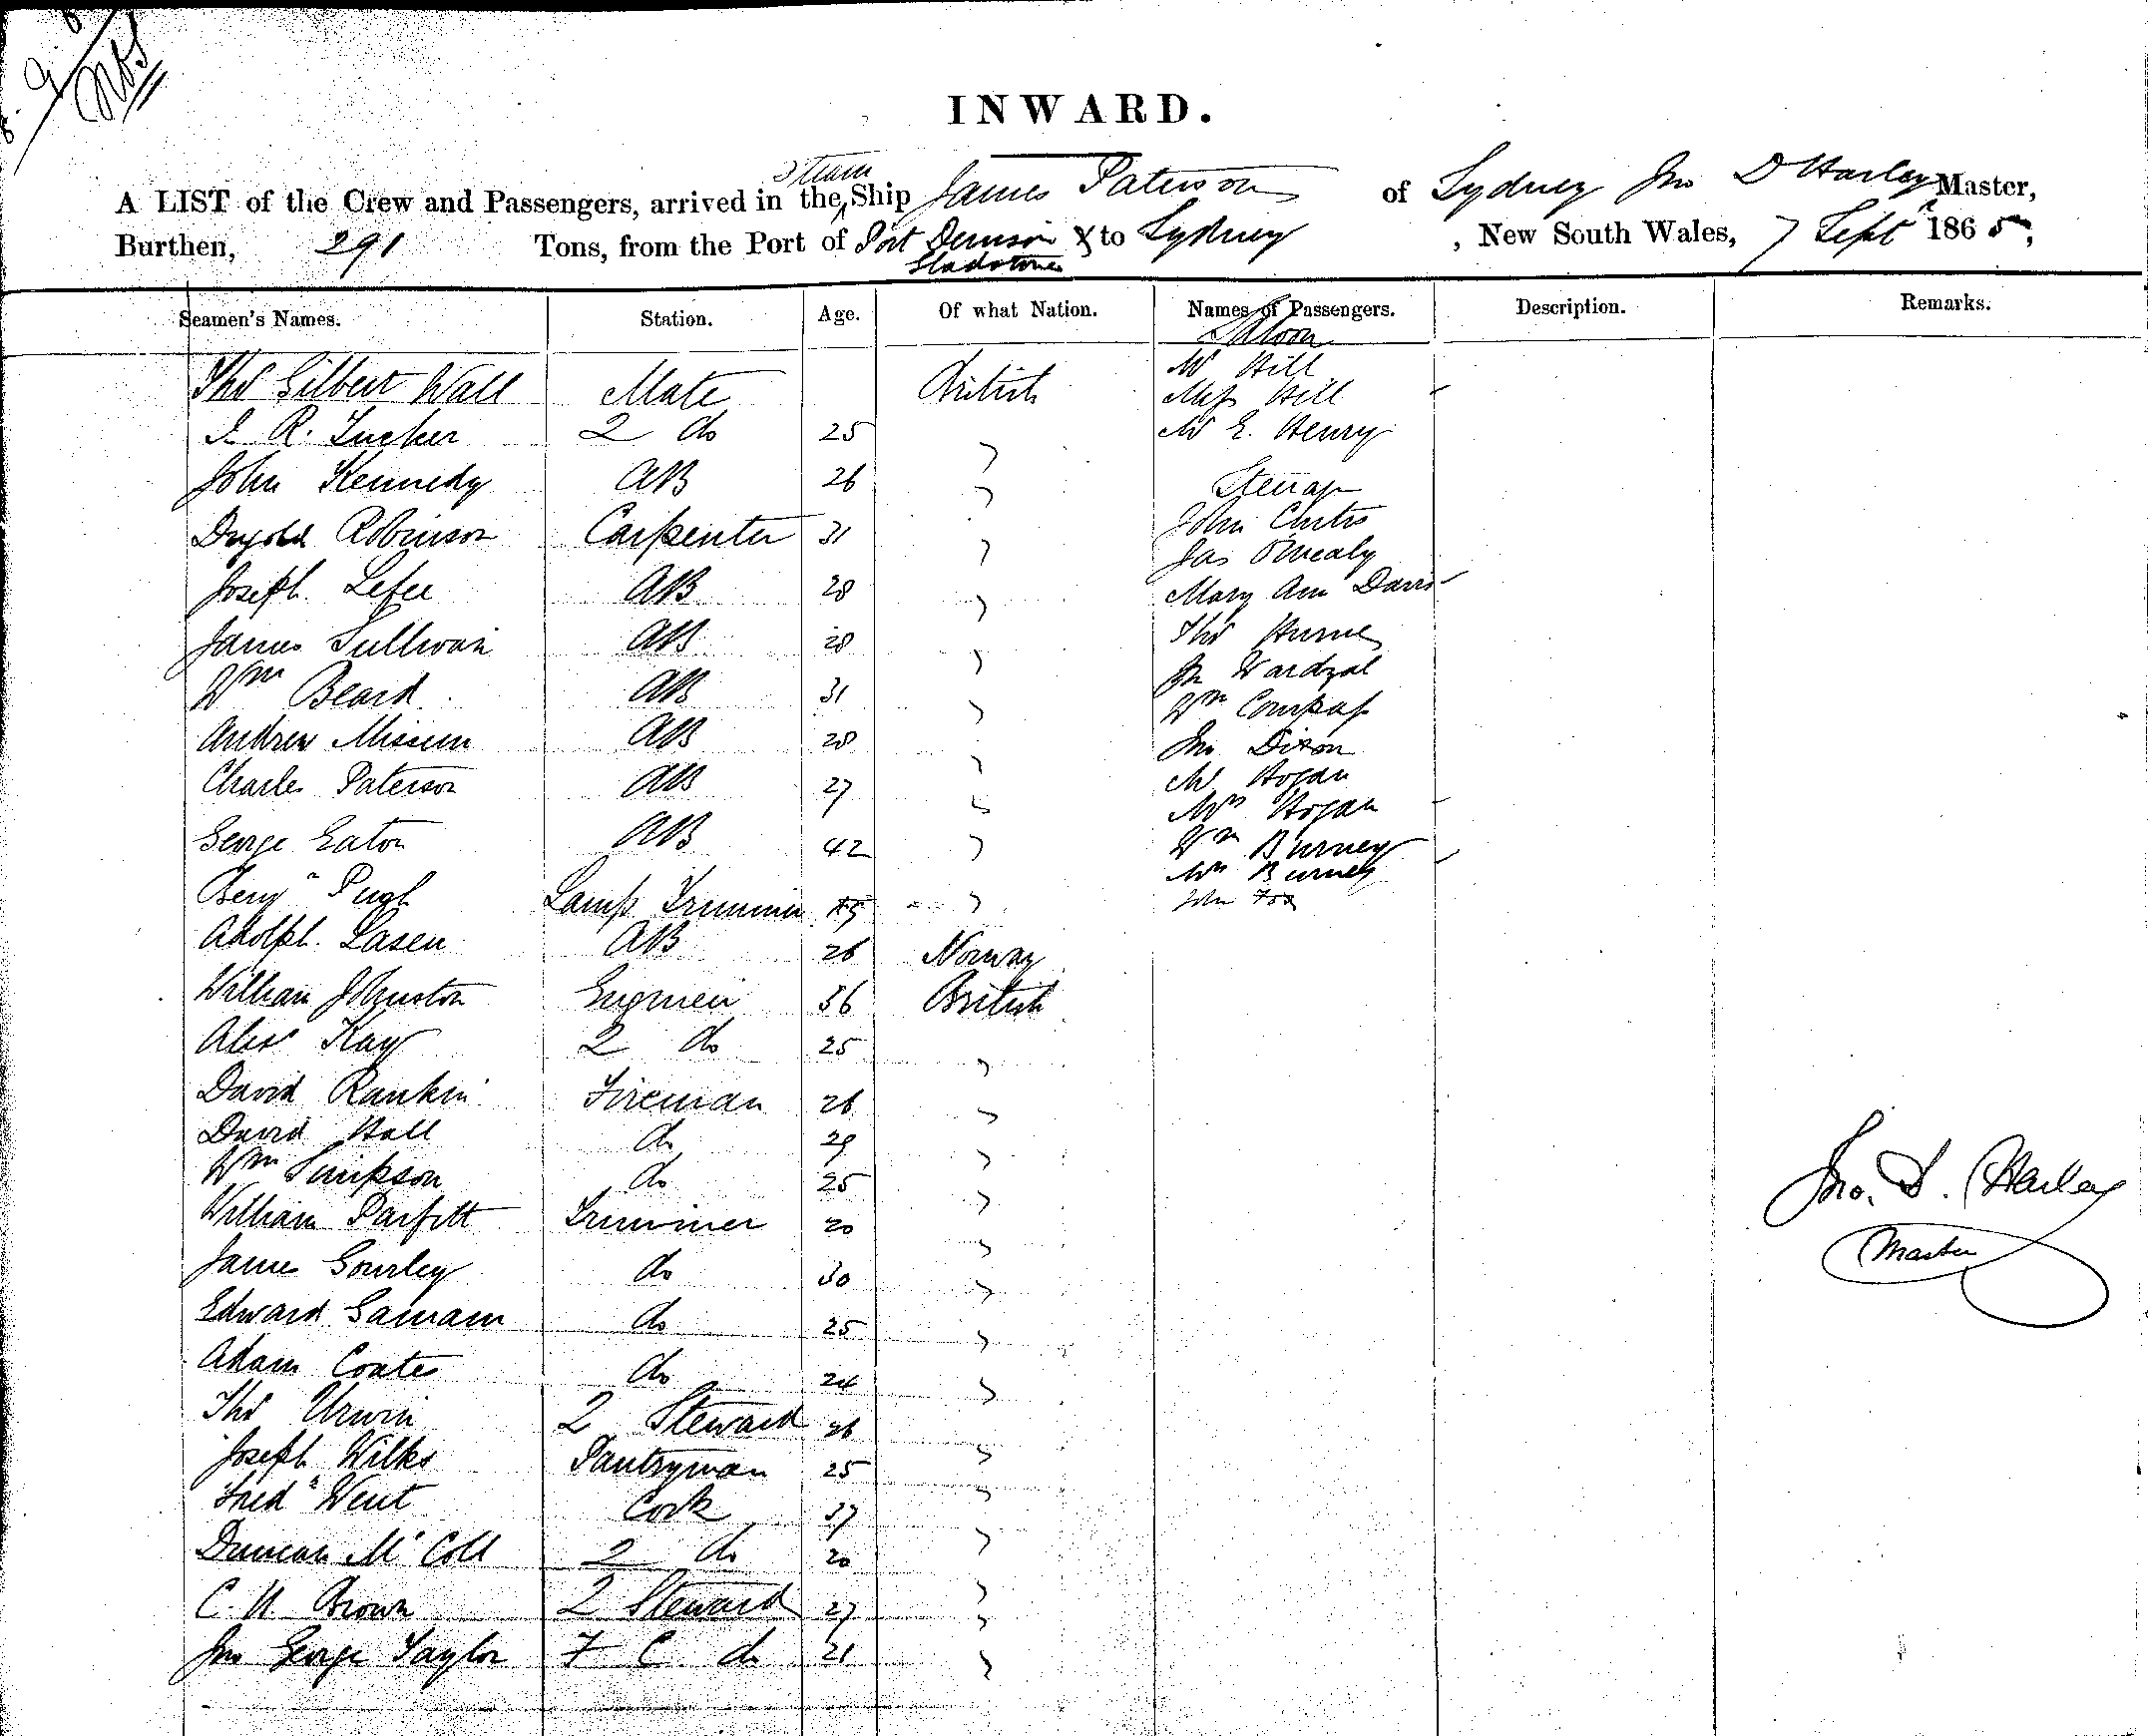 INWARD.
Steam
A LIST of the Crew and Passengers, arrived in the Ship James Paterson of Sydney Jno D Harley Master,
Burthen, 291 Tons, from the Port of Port Denison & to Sydney , New South Wales, 7 Sept 1865,
Gladstone
Seamen's Names. Station. Age. Of what Nation. Names of Passengers. Description. Remarks.
Saloon
Thos Gilbert Wall Mate British Mr Hill
Miss Hill
R. Tucker 2 do 25 " Mr E. Henry
John Kennedy AB 26 " Steerage
Robinson Carpenter 31 " John Curtis
Jas
Joseph AB 28 " Mary Ann Davis
James Sullivan AB 28 " Thos
Wm Beard AB 31 " Jn
Wm
Andrew AB 28 " Jno Dixon
Charles Paterson AB 27 " Mr Hogan
Mrs Hogan
George Eaton AB 42 " Wm Burney
Mrs Burney
Benjn Pugh Lamp Trimmer " John Fox
Adolph Lasen AB 26 Norway
William Johnston Engineer 36 British
Alex Kay 2 do 25 "
David Rankin Fireman 26 "
David Hall do 29 "
Wm Simpson do 25 "
William Parfitt Trimmer 20 "
James Gourley do 30 "
Edward do 25 "
Adam Coates do 24 "
Thos Urwin 2 Steward 26 "
Joseph Wilks Pantryman 25 "
Fredk Went Cook 37 "
Duncan McColl 2 do 20 "
C. H. Brown 2 Steward 27 "
Jno George Taylor F C do 21 "
Jno. D. Harley
Master